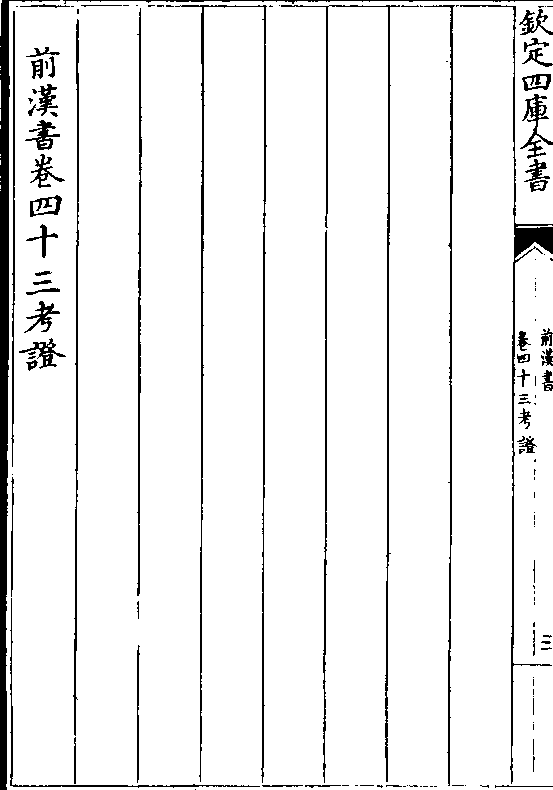 欽定四庫全書
前漢書
卷四十三考證
三
前漢書卷四十三考證